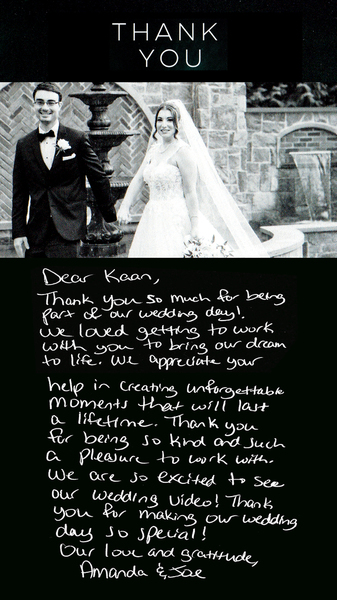 THANK
YOU
Dear Kaan,
Thank you so much for being
part of our wedding day!
We loved getting to work
with you to bring our dream
to life. We appreciate your
help in creating unforgettable
moments that will last
a lifetime. Thank you
for being so kind and such
a pleasure to work with.
We are so excited to see
our wedding video! Thank
you for making our wedding
day so special!
Our love and gratitude,
Amanda & Joe